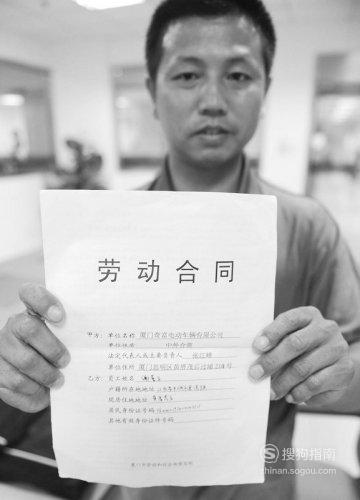 劳动合同
甲方：单位名称 厦门奇富电动车辆有限公司
单位性质 中外合资
法定代表人或主要负责人 张江峰
单位住所 厦门思明区前埔茂后过埔238号
乙方：员工姓名
户籍所在地地址
现居住地地址
居民身份证号码
其他有效身份证件号码
厦门市劳动和社会保障局制
搜狗指南
zhinan.sogou.com